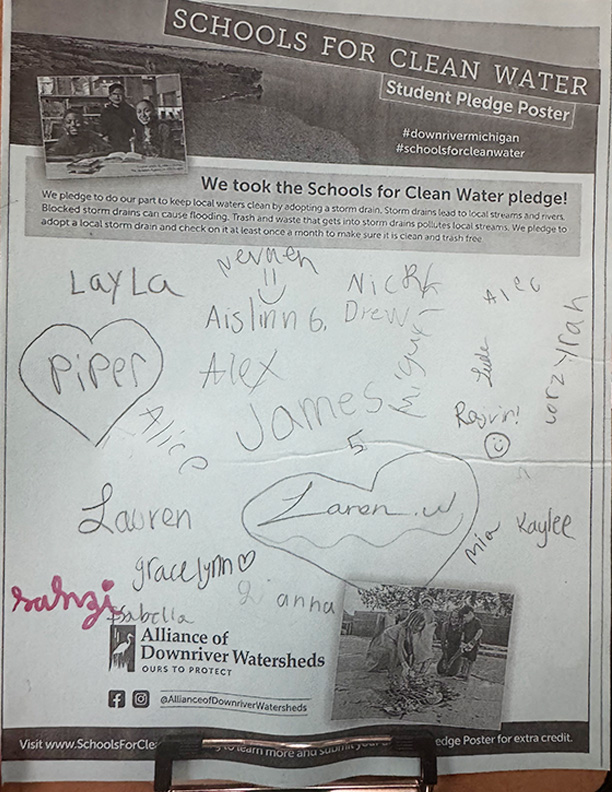 SCHOOLS FOR CLEAN WATER
Student Pledge Poster
#downrivermichigan
#schoolsforcleanwater
We took the Schools for Clean Water pledge!
We pledge to do our part to keep local waters clean by adopting a storm drain. Storm drains lead to local streams and rivers.
Blocked storm drains can cause flooding. Trash and waste that gets into storm drains pollutes local streams. We pledge to
adopt a local storm drain and check on it at least once a month to make sure it is clean and trash free.
LayLa
Nick
Alec
Aislinn G.
Drew
Piper
Alex
James
Alice
Lauren
Laren.W
Mia
Kaylee
gracelynn
Isabella
Alliance of
Downriver Watersheds
OURS TO PROTECT
@AllianceofDownriverWatersheds
Visit www.SchoolsForCle to learn more and submit your edge Poster for extra credit.